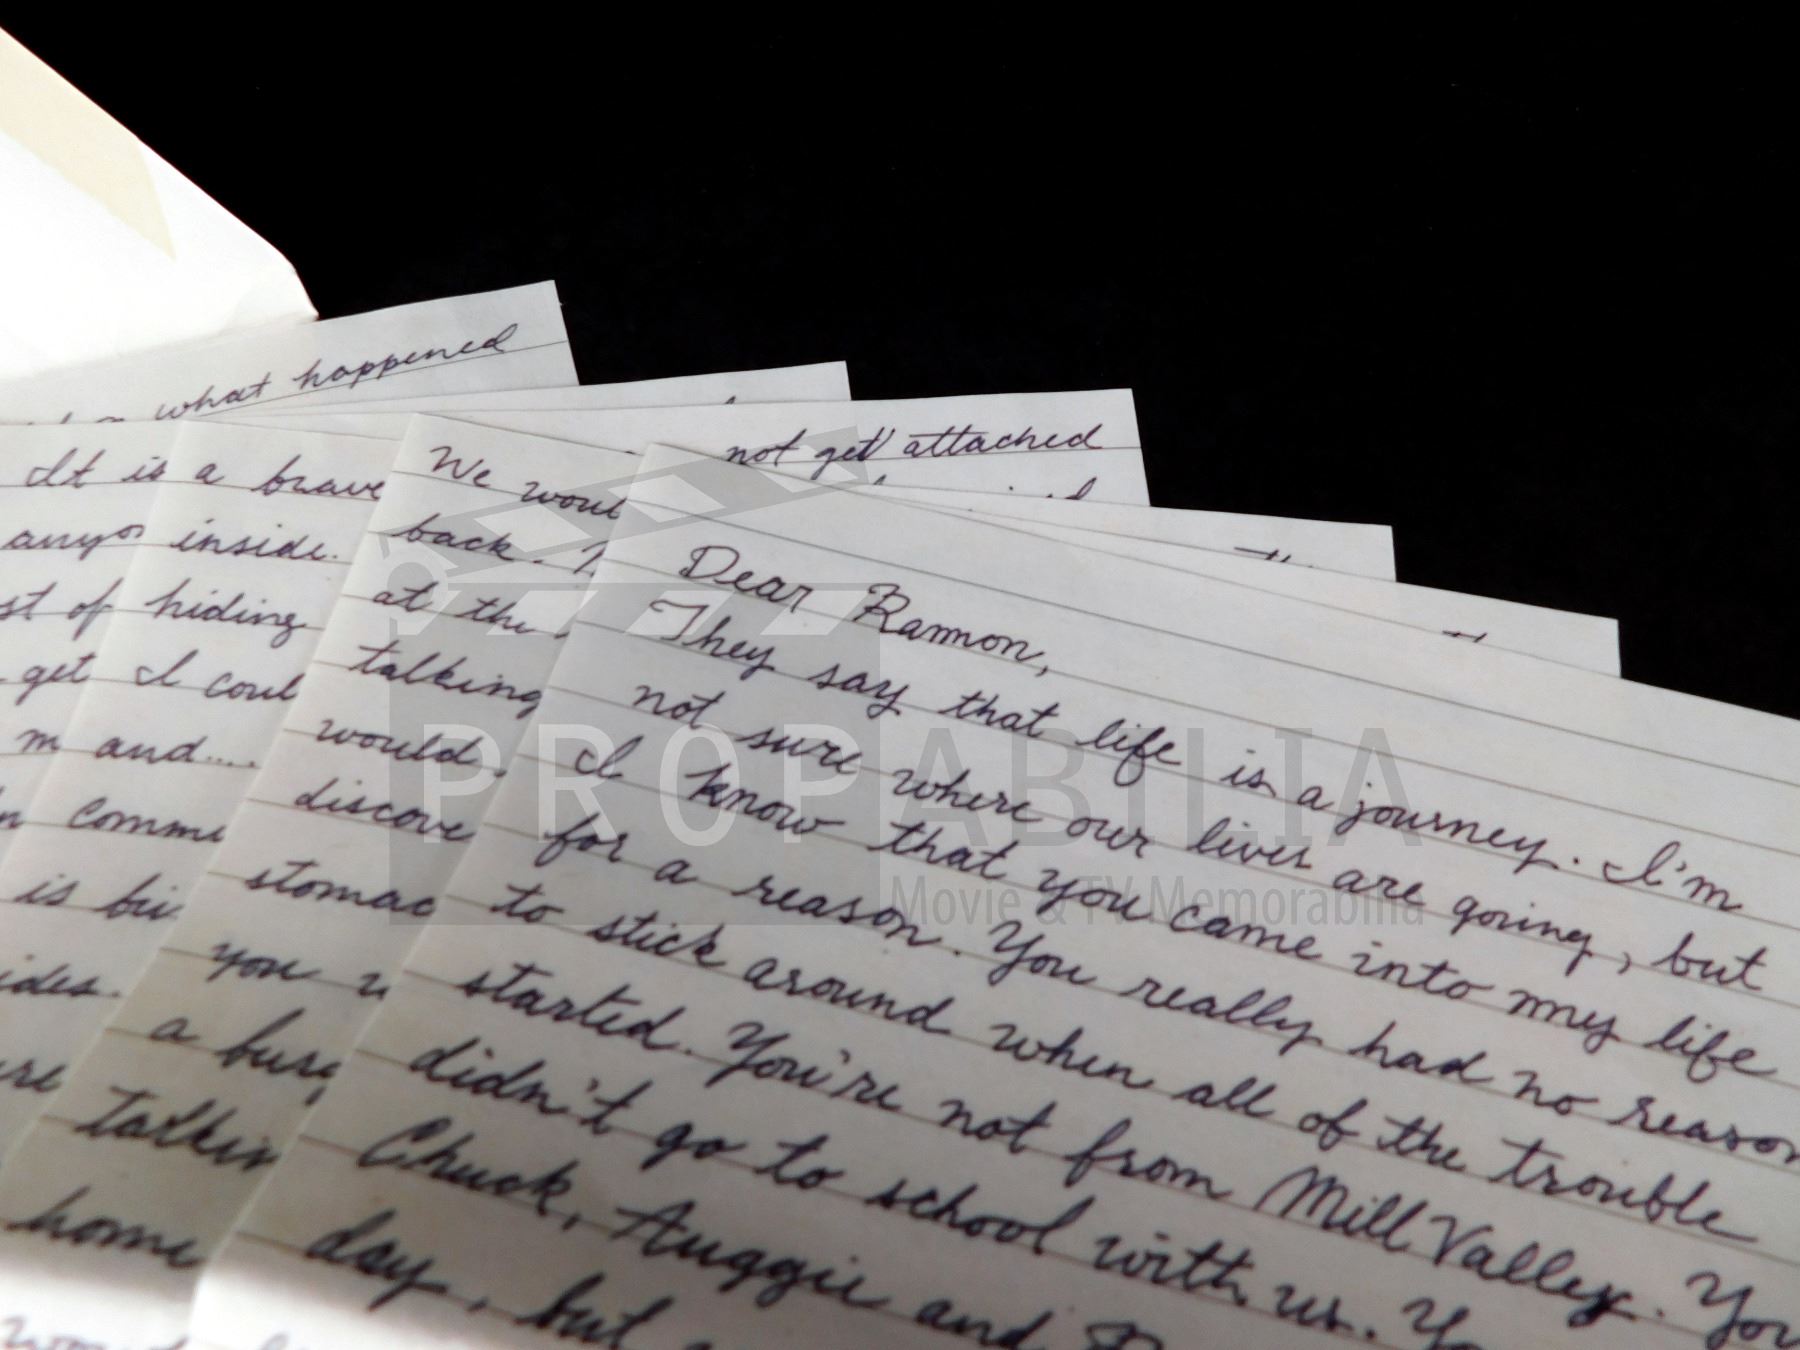 what happened
not get attached
It is a brave
inside.
hiding
get I coul
m and....
comme
is bu
ides.
We woul
back.
at the
talking
would.
discove
stomac
you
a burg
talkin
home
Dear Ramon,
They say that life is a journey. I'm
not sure where our lives are going, but
I know that you came into my life
for a reason. You really had no reason
to stick around when all of the trouble
started. You're not from Mill Valley. You
didn't go to school with us. Yo
Chuck, Auggie and
day, but
PROPABILIA
Movie & TV Memorabilia